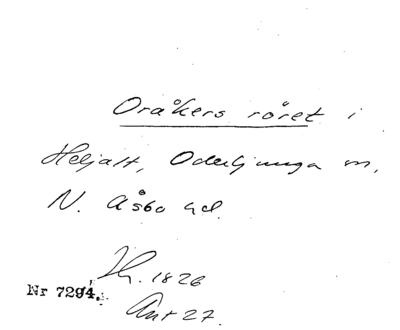 Oråkers röret i
Heljalt, Oderljunga sn,
N. Åsbo hd.
H. 1826
Nr 7294.
Ant 27.